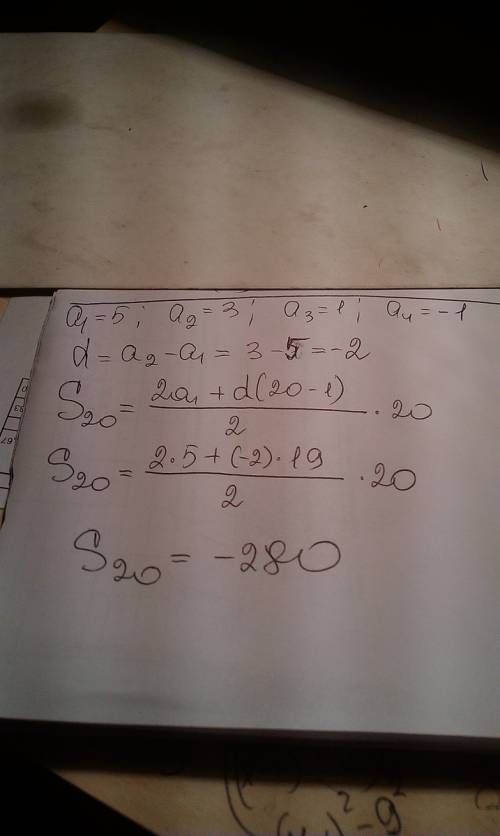 a₁ = 5 ; a₂ = 3 ; a₃ = 1 ; a₄ = -1
d = a₂ - a₁ = 3 - 5 = -2
S₂₀ = (2a₁ + d(20 - 1)) / 2 · 20
S₂₀ = (2 · 5 + (-2) · 19) / 2 · 20
S₂₀ = -280
² - 9